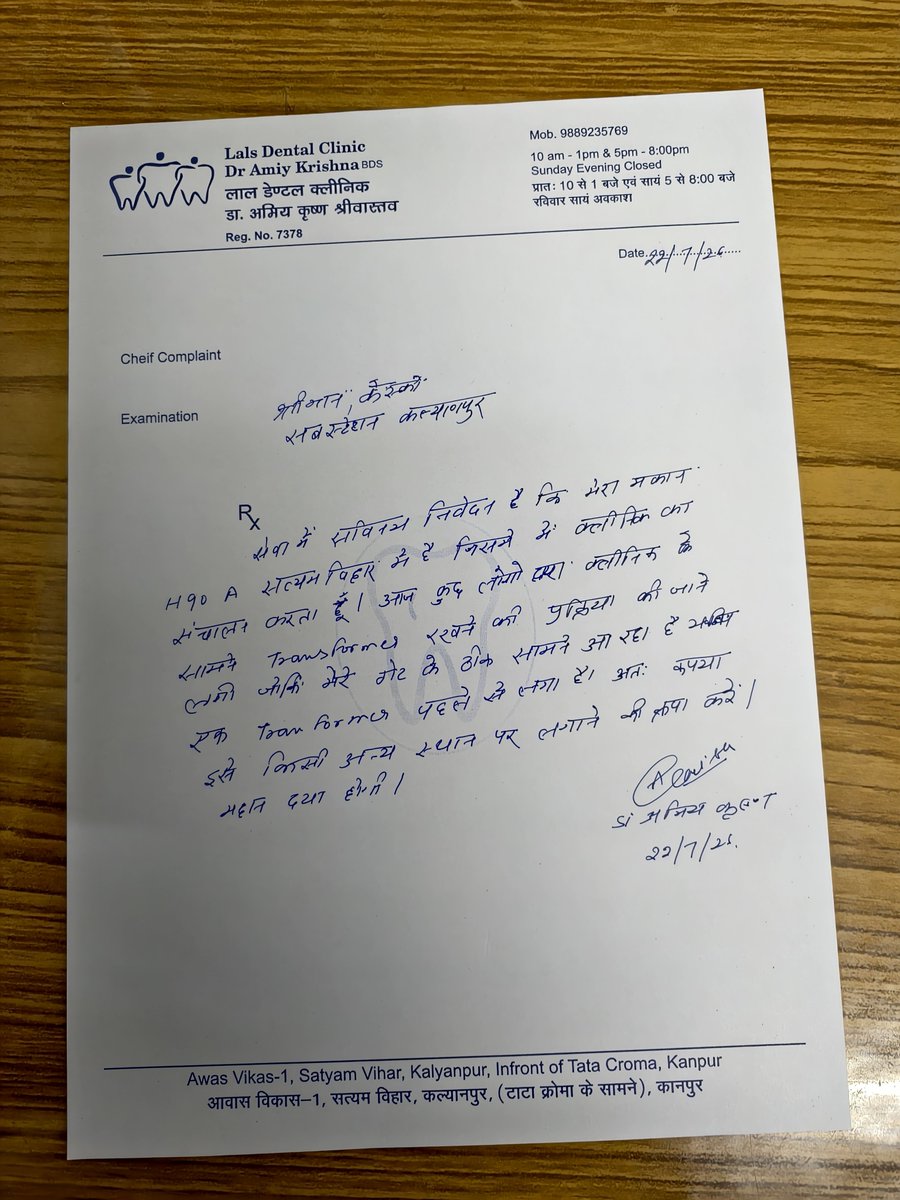 Lals Dental Clinic
Dr Amiy Krishna BDS
लाल डेण्टल क्लीनिक
डा. अमिय कृष्ण श्रीवास्तव
Reg. No. 7378
Mob. 9889235769
10 am - 1pm & 5pm - 8:00pm
Sunday Evening Closed
प्रातः 10 से 1 बजे एवं सायं 5 से 8:00 बजे
रविवार सायं अवकाश
Date 22/7/
Cheif Complaint
Examination
श्रीमान, केस्को
सबस्टेशन कल्याणपुर
Rx
सेवा में सविनय निवेदन है कि मेरा मकान
H 90 A सत्यम विहार में है जिसमे में क्लीनिक का
संचालन करता हूँ। आज कुछ लोगो द्वारा क्लीनिक के
सामने Transformer रखने की प्रक्रिया की जाने
लगी जोकि मेरे गेट के ठीक सामने आ रहा है
एक Tranformer पहले से लगा है। अतः कृपया
इसे किसी अन्य स्थान पर लगाने की कृपा करें।
महान दया होगी।
डा अमिय कृष्ण
22/7/
Awas Vikas-1, Satyam Vihar, Kalyanpur, Infront of Tata Croma, Kanpur
आवास विकास–1, सत्यम विहार, कल्यानपुर, (टाटा क्रोमा के सामने), कानपुर